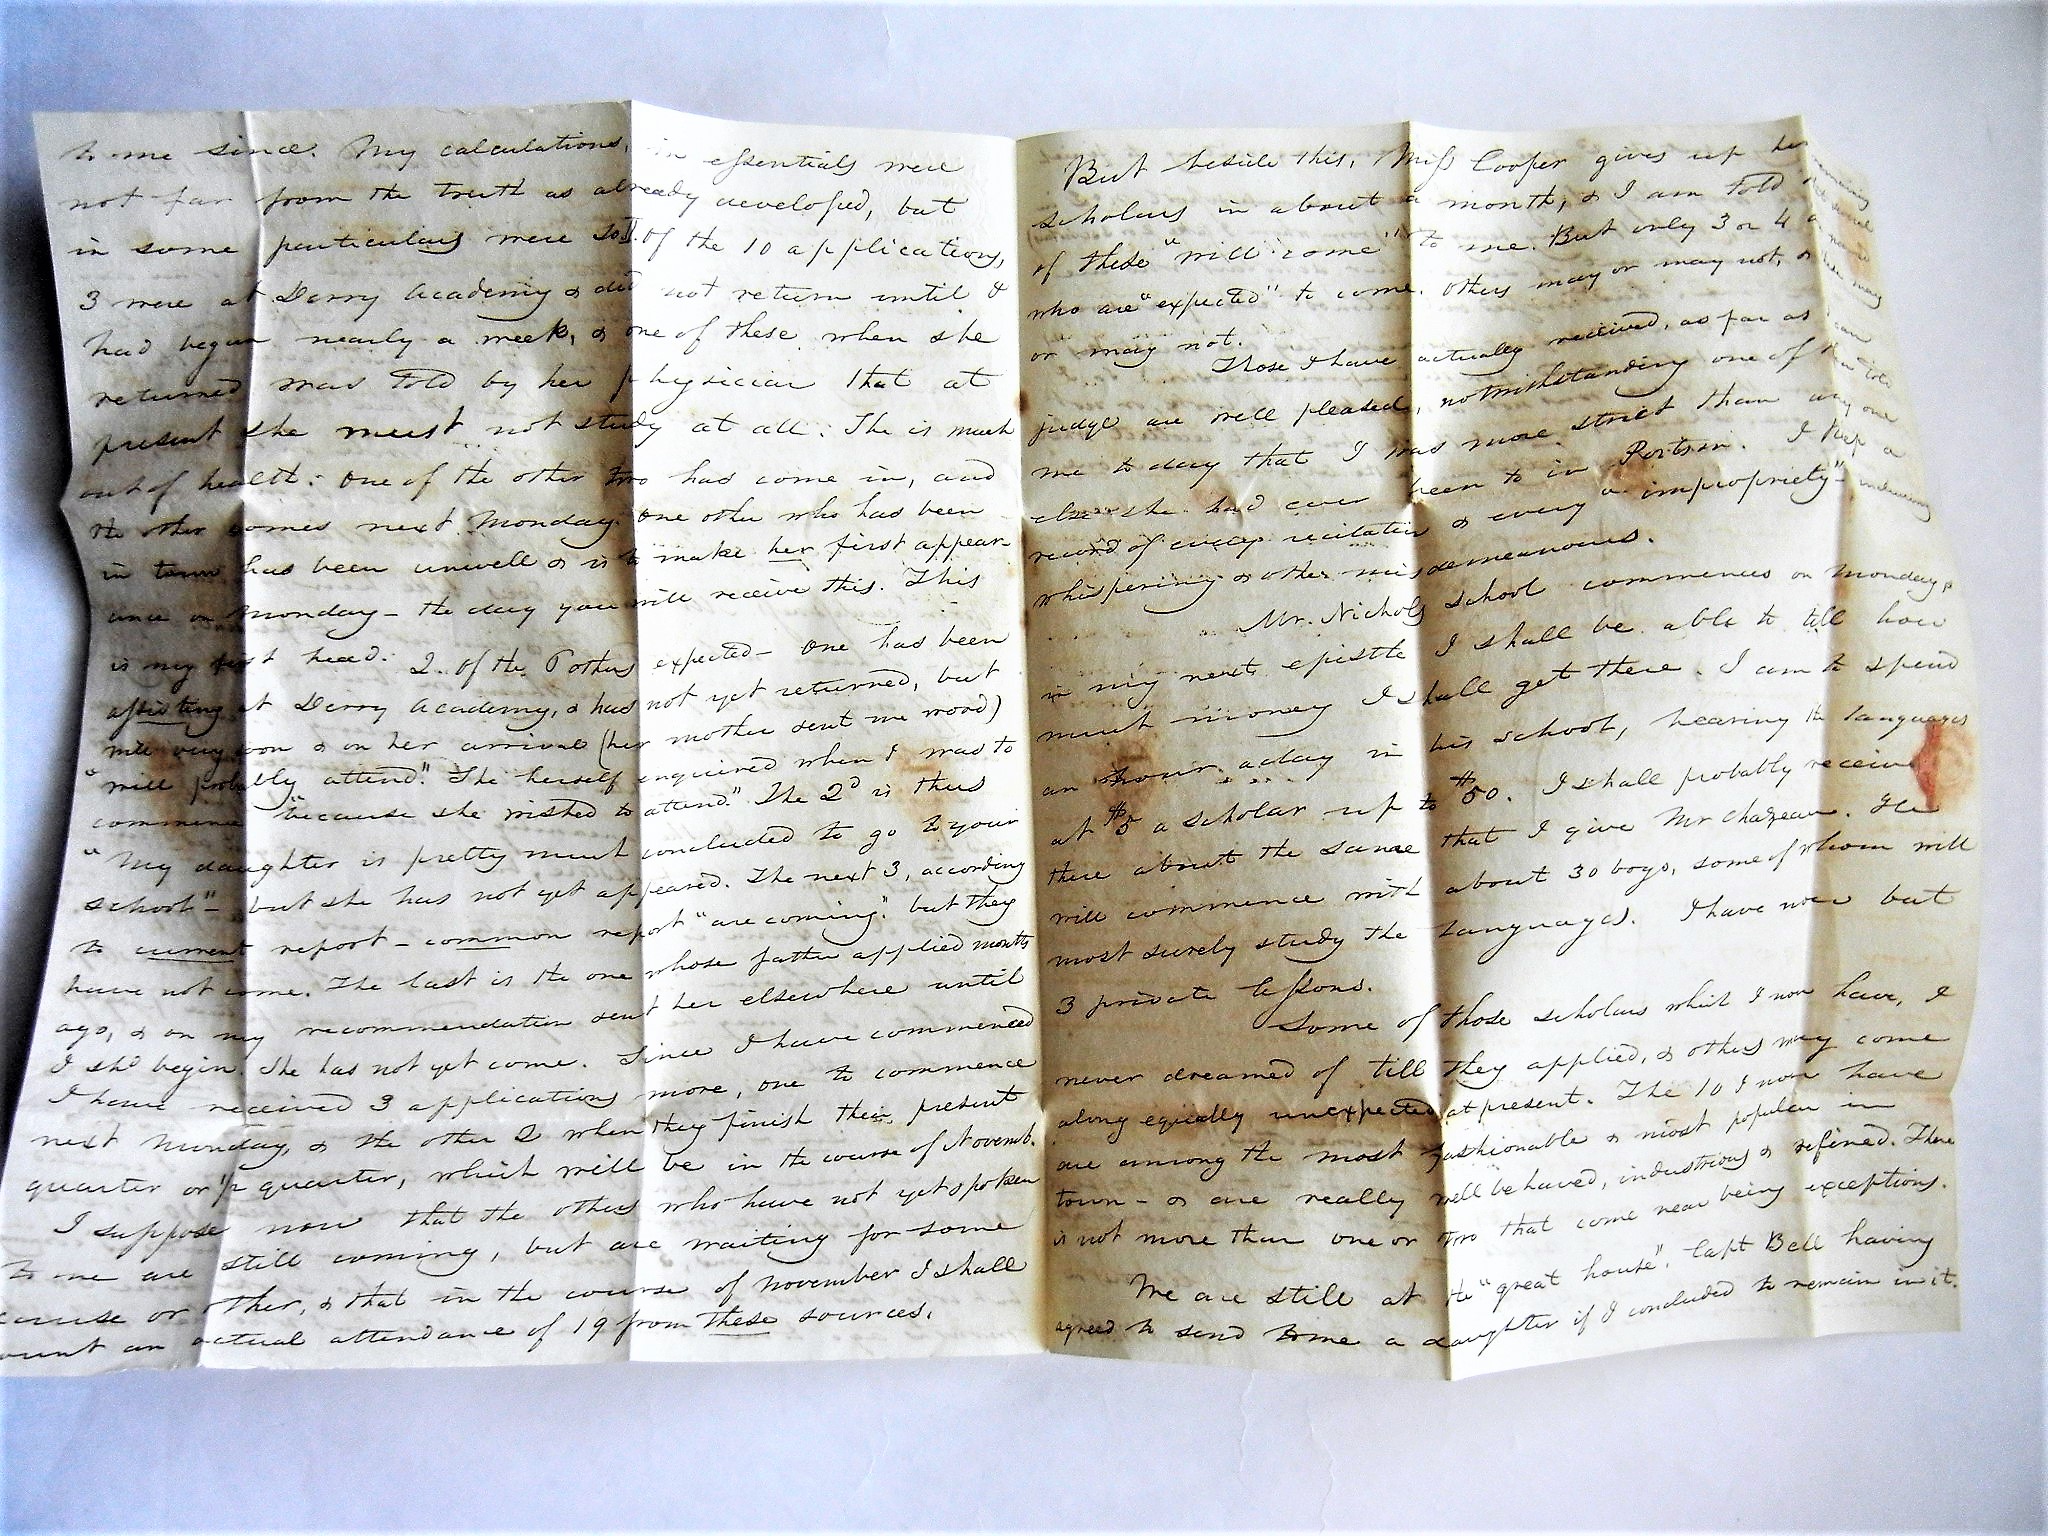 to me since. My calculations, in essentials were
not far from the truth as already developed, but
in some particulars were so. Of the 10 applications,
3 were at Derry Academy & did not return until I
had begun nearly a week, & one of these when she
returned was told by her physician that at
present she must not study at all. She is much
out of health. One of the other two has come in, and
the other comes next Monday. One other who has been
in town has been unwell & is to make her first appear-
ance on Monday – the day you will receive this. This
is my first head. 2. of the 6 others expected – One has been
assisting at Derry Academy, & has not yet returned, but
will very soon & on her arrival (her mother sent me word)
"will probably attend". She herself enquired when I was to
commence "because she wished to attend." The 2d is thus
"My daughter is pretty much concluded to go to your
school" – but she has not yet appeared. The next 3, according
to current report – common report "are coming". but they
have not come. The last is the one whose father applied months
ago, & on my recommendation sent her elsewhere until
I shd begin. She has not yet come. Since I have commenced
I have received 3 applications more, one to commence
next Monday, & the other 2 when they finish their present
quarter or ½ quarter, which will be in the course of Novemb.
I suppose now that the others who have not yet spoken
to me are still coming, but are waiting for some
cause or other, & that in the course of November I shall
count an actual attendance of 19 from these sources.
But beside this, Miss Cooper gives up her remaining
scholars in about a month, & I am told
of these "will come" to me. But only 3 or 4 are named
who are "expected" to come. others may or may not, & these may
or may not.
Those I have actually received, as far as I can
judge are well pleased, notwithstanding one of them told
me to day that I was more strict than any one
else she had ever been to in Portsm. I keep a
record of every recitation & every "impropriety" – including
whispering & other misdemeanours.
Mr. Nichols school commences on Monday,
in my next epistle I shall be able to tell how
much money I shall get there. I am to spend
an hour a day in his school, hearing the languages
at $5 a scholar up to $50. I shall probably receive
there about the same that I give Mr Chazeau. He
will commence with about 30 boys, some of whom will
most surely study the languages. I have now but
3 private lessons.
Some of those scholars which I now have, I
never dreamed of till they applied, & others may come
along equally unexpected at present. The 10 I now have
are among the most fashionable & most popular in
town – & are really well behaved, industrious & refined. There
is not more than one or two that come near being exceptions.
We are still at the "great house". Capt Bell having
agreed to send to me a daughter if I concluded to remain in it.